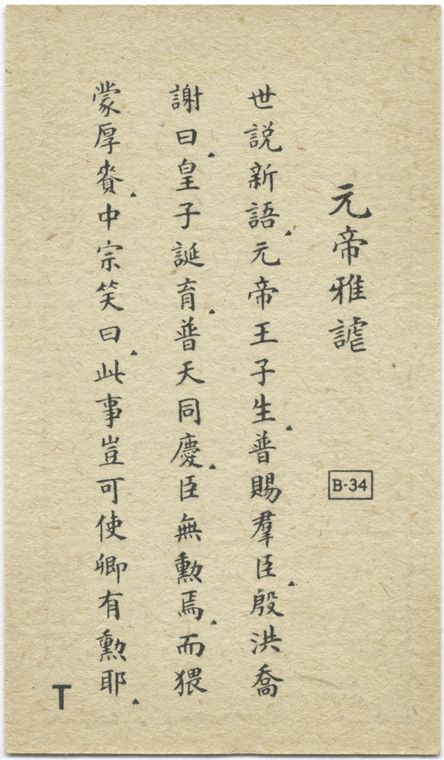 元帝雅謔
B-34
世説新語元帝王子生普賜羣臣殷洪喬
謝曰皇子誕育普天同慶臣無勲焉而猥
蒙厚賚中宗笑曰此事豈可使卿有勲耶
T